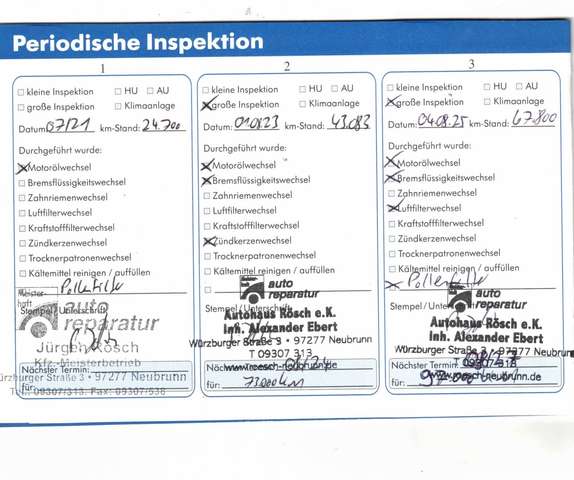 Periodische Inspektion
1
kleine Inspektion HU AU
große Inspektion Klimaanlage
Datum: 07/21 km-Stand: 24.700
Durchgeführt wurde:
Motorölwechsel
Bremsflüssigkeitswechsel
Zahnriemenwechsel
Luftfilterwechsel
Kraftstofffilterwechsel
Zündkerzenwechsel
Trocknerpatronenwechsel
Kältemittel reinigen / auffüllen
Pollenfilter
Meister-
haft
auto
reparatur
Stempel / Unterschrift
Jürgen Rösch
Kfz-Meisterbetrieb
Nächster Termin:
Würzburger Straße 3 • 97277 Neubrunn
für:
Tel.: 09307/313, Fax: 09307/538
2
kleine Inspektion HU AU
große Inspektion Klimaanlage
Datum: 01.08.23 km-Stand: 43.083
Durchgeführt wurde:
Motorölwechsel
Bremsflüssigkeitswechsel
Zahnriemenwechsel
Luftfilterwechsel
Kraftstofffilterwechsel
Zündkerzenwechsel
Trocknerpatronenwechsel
Kältemittel reinigen / auffüllen
auto
reparatur
Stempel / Unterschrift
Autohaus Rösch e.K.
Inh. Alexander Ebert
Würzburger Straße 3 • 97277 Neubrunn
T 09307 313
Nächster Termin:
www.roesch-neubrunn.de
für: 73.000 km
3
kleine Inspektion HU AU
große Inspektion Klimaanlage
Datum: 04.08.25 km-Stand: 67.800
Durchgeführt wurde:
Motorölwechsel
Bremsflüssigkeitswechsel
Zahnriemenwechsel
Luftfilterwechsel
Kraftstofffilterwechsel
Zündkerzenwechsel
Trocknerpatronenwechsel
Kältemittel reinigen / auffüllen
Pollenfilter
auto
reparatur
Stempel / Unterschrift
Autohaus Rösch e.K.
Inh. Alexander Ebert
Würzburger Straße 3 • 97277 Neubrunn
T 09307 313
Nächster Termin:
www.roesch-neubrunn.de
für: